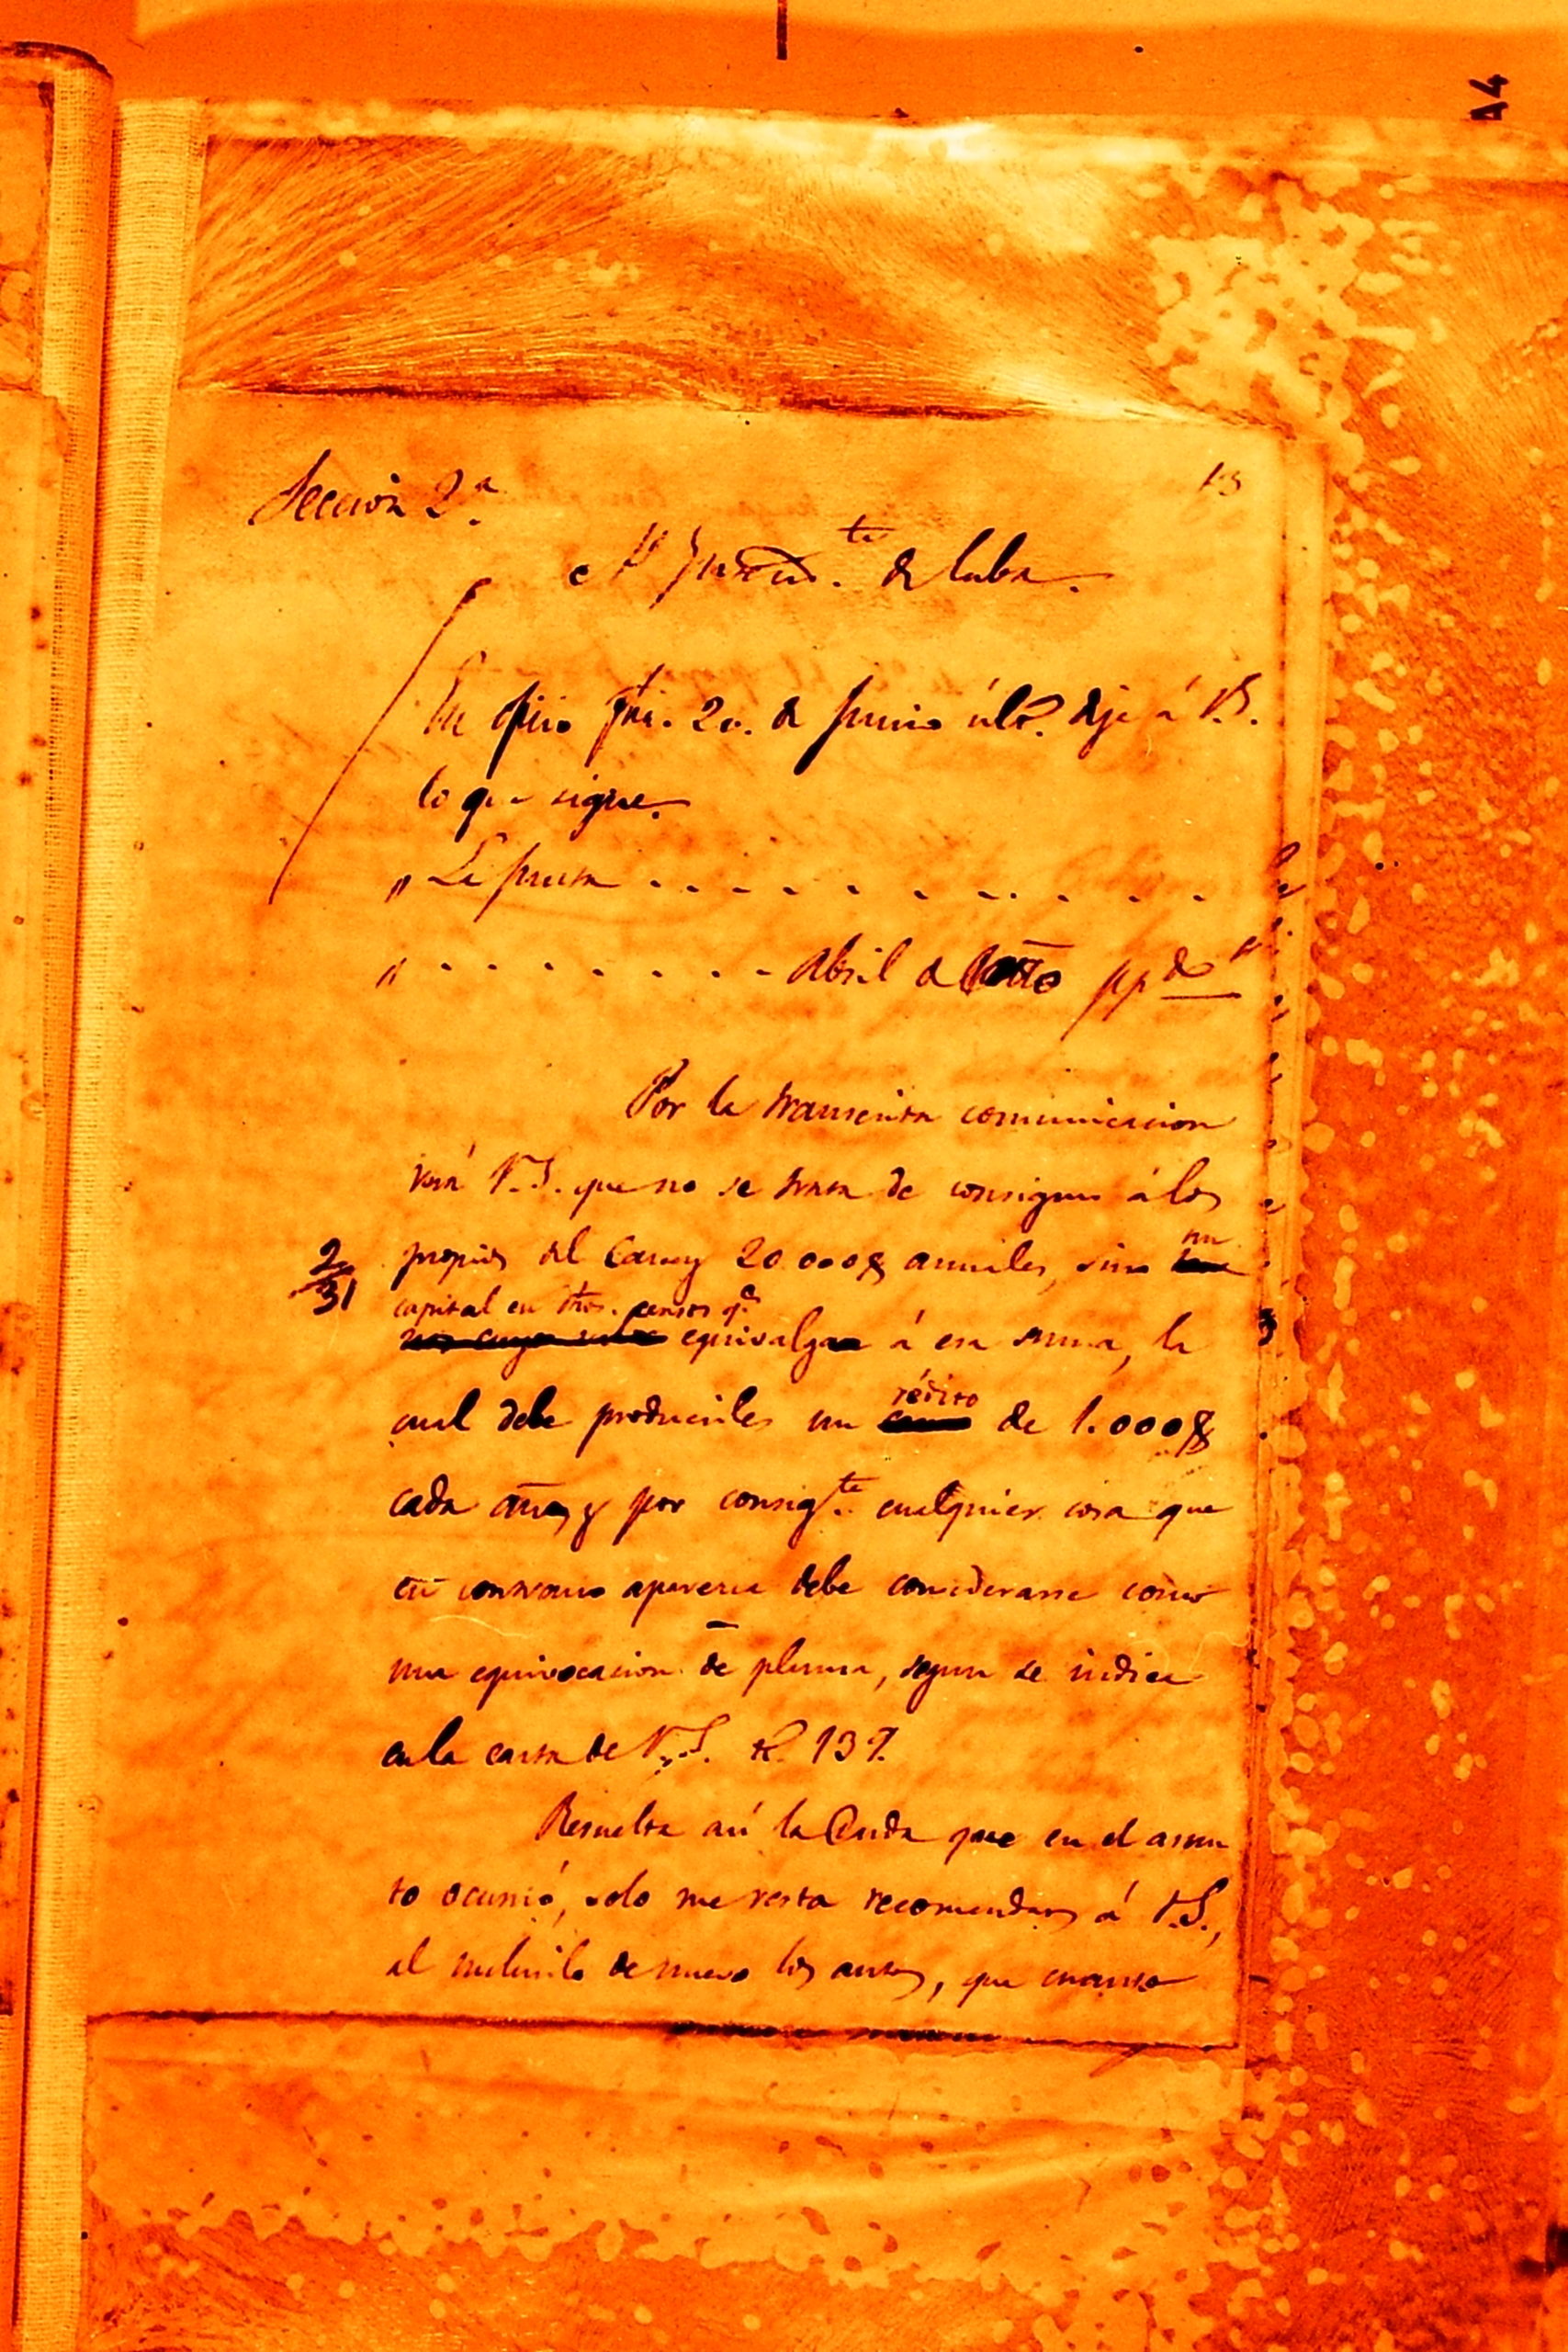 44
Seccion 2ª
13
Al Intend.te de Cuba.
En ofi.o fha. 20. de Junio últ.o dije á V.S.
lo que sigue.
„ La Junta . . . . . . . . . .
„ . . . . . . . . abril de ppdo"
Por la transcrita comunicacion
verá V.S. que no se trata de consignar á los
propios del Caney 20.000$ anuales, sino un
2/31
capital en dhos. censos q.e
equivalga á esa suma, la
cual debe producirles un rédito de 1.000$
cada año, y por consig.te cualquier cosa que
en contrario aparezca debe considerarse como
una equivocacion de pluma, segun se indica
en la carta de V.S. nº 137.
Resuelta así la duda que en el asun
to ocurrió, solo me resta recomendar á V.S.,
al de nuevo los autos, que cuanto